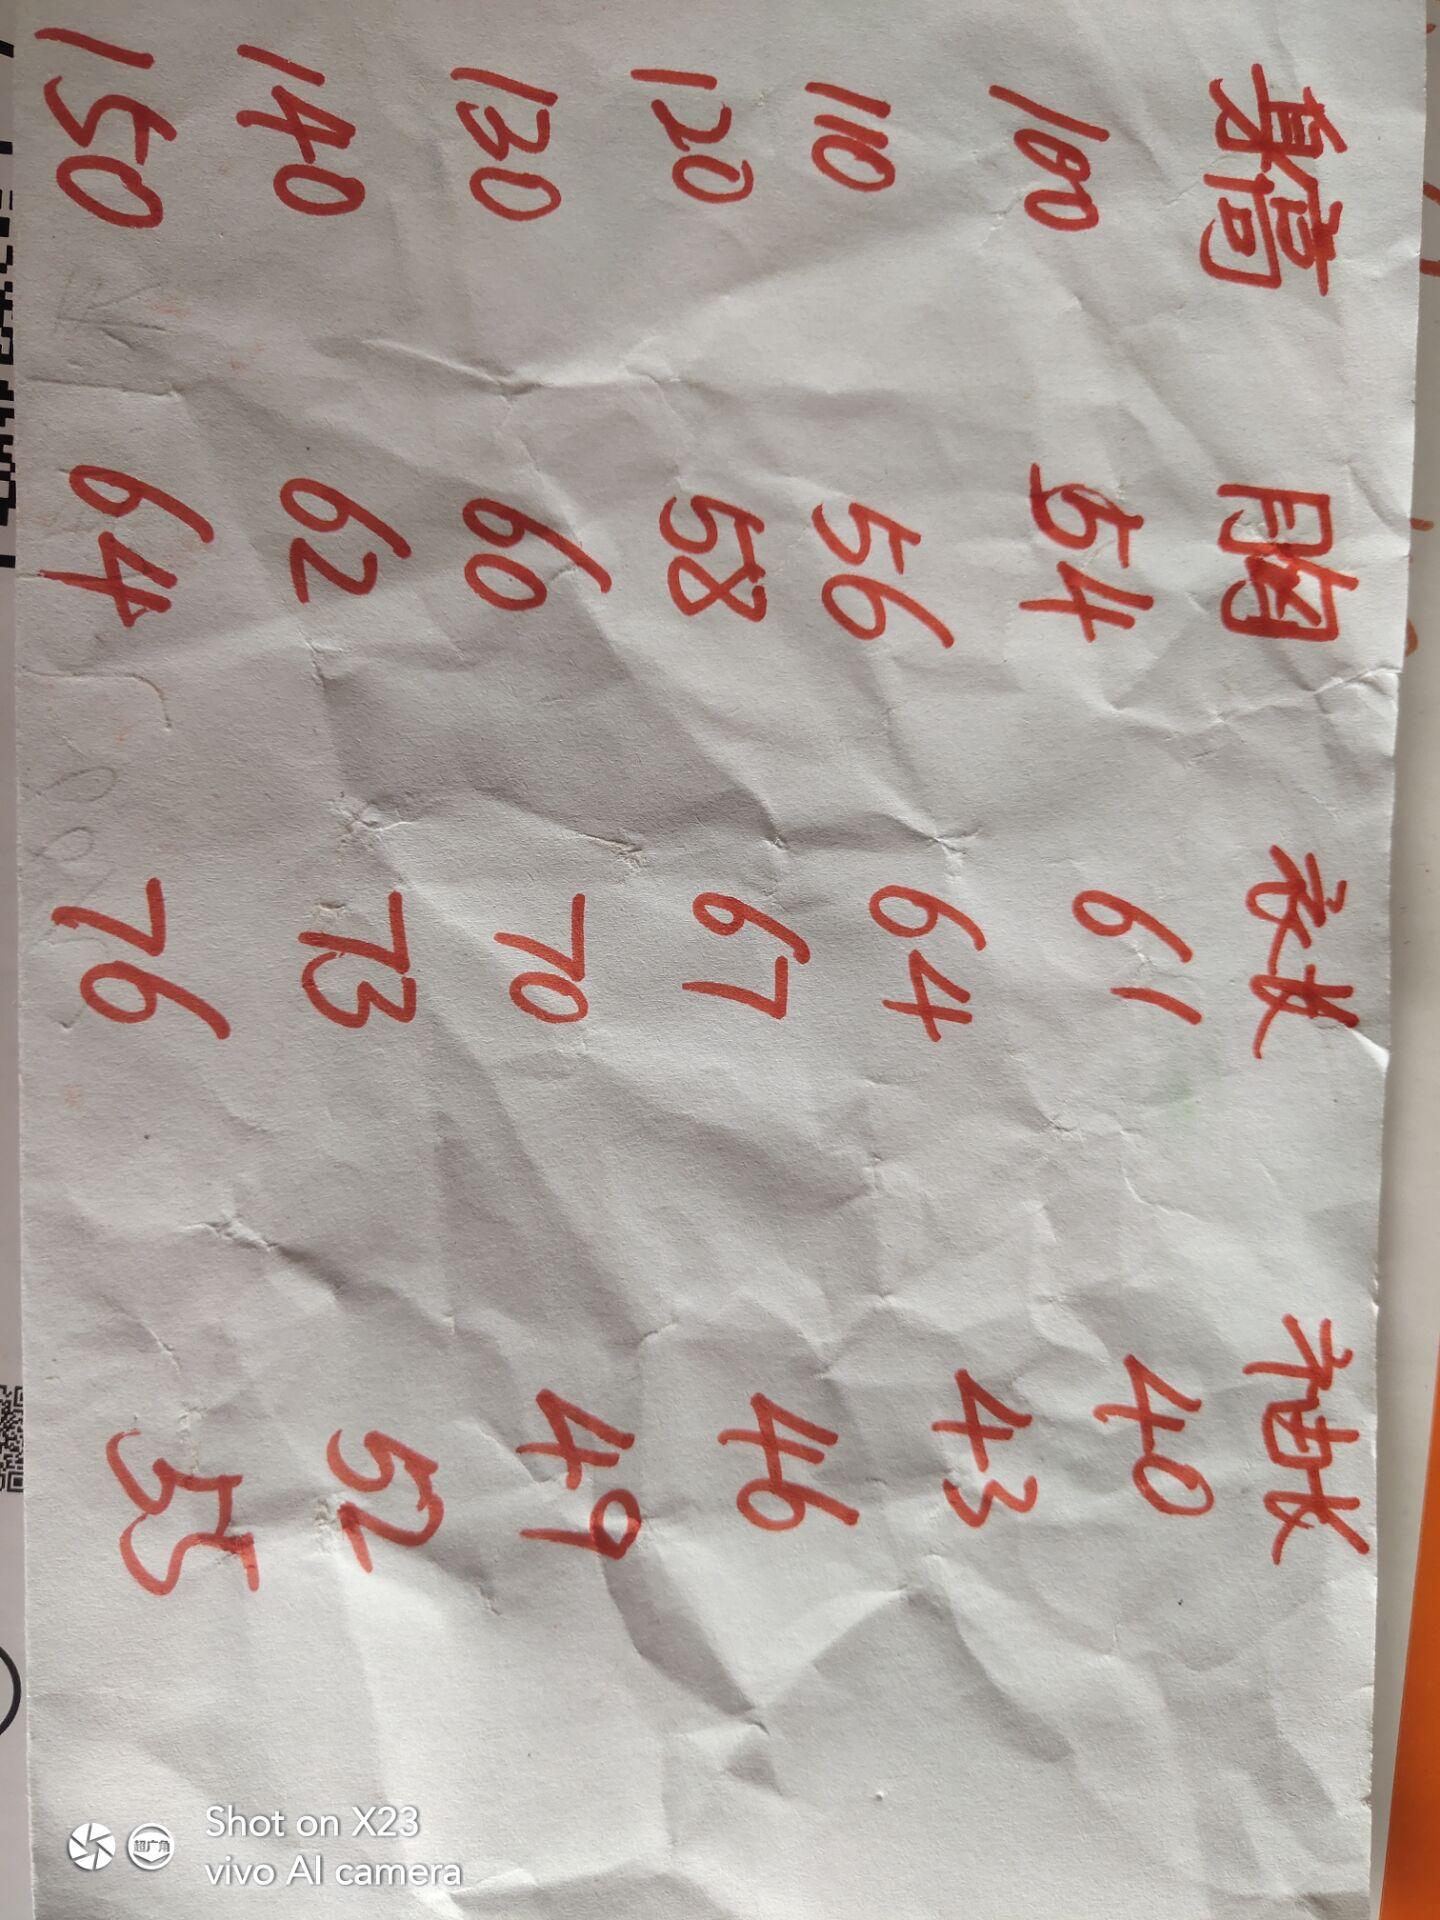 身高 胸 衣长 袖长
100 54 61 40
110 56 64 43
120 58 67 46
130 60 70 49
140 62 73 52
150 64 76 55
超广角
Shot on X23
vivo AI camera